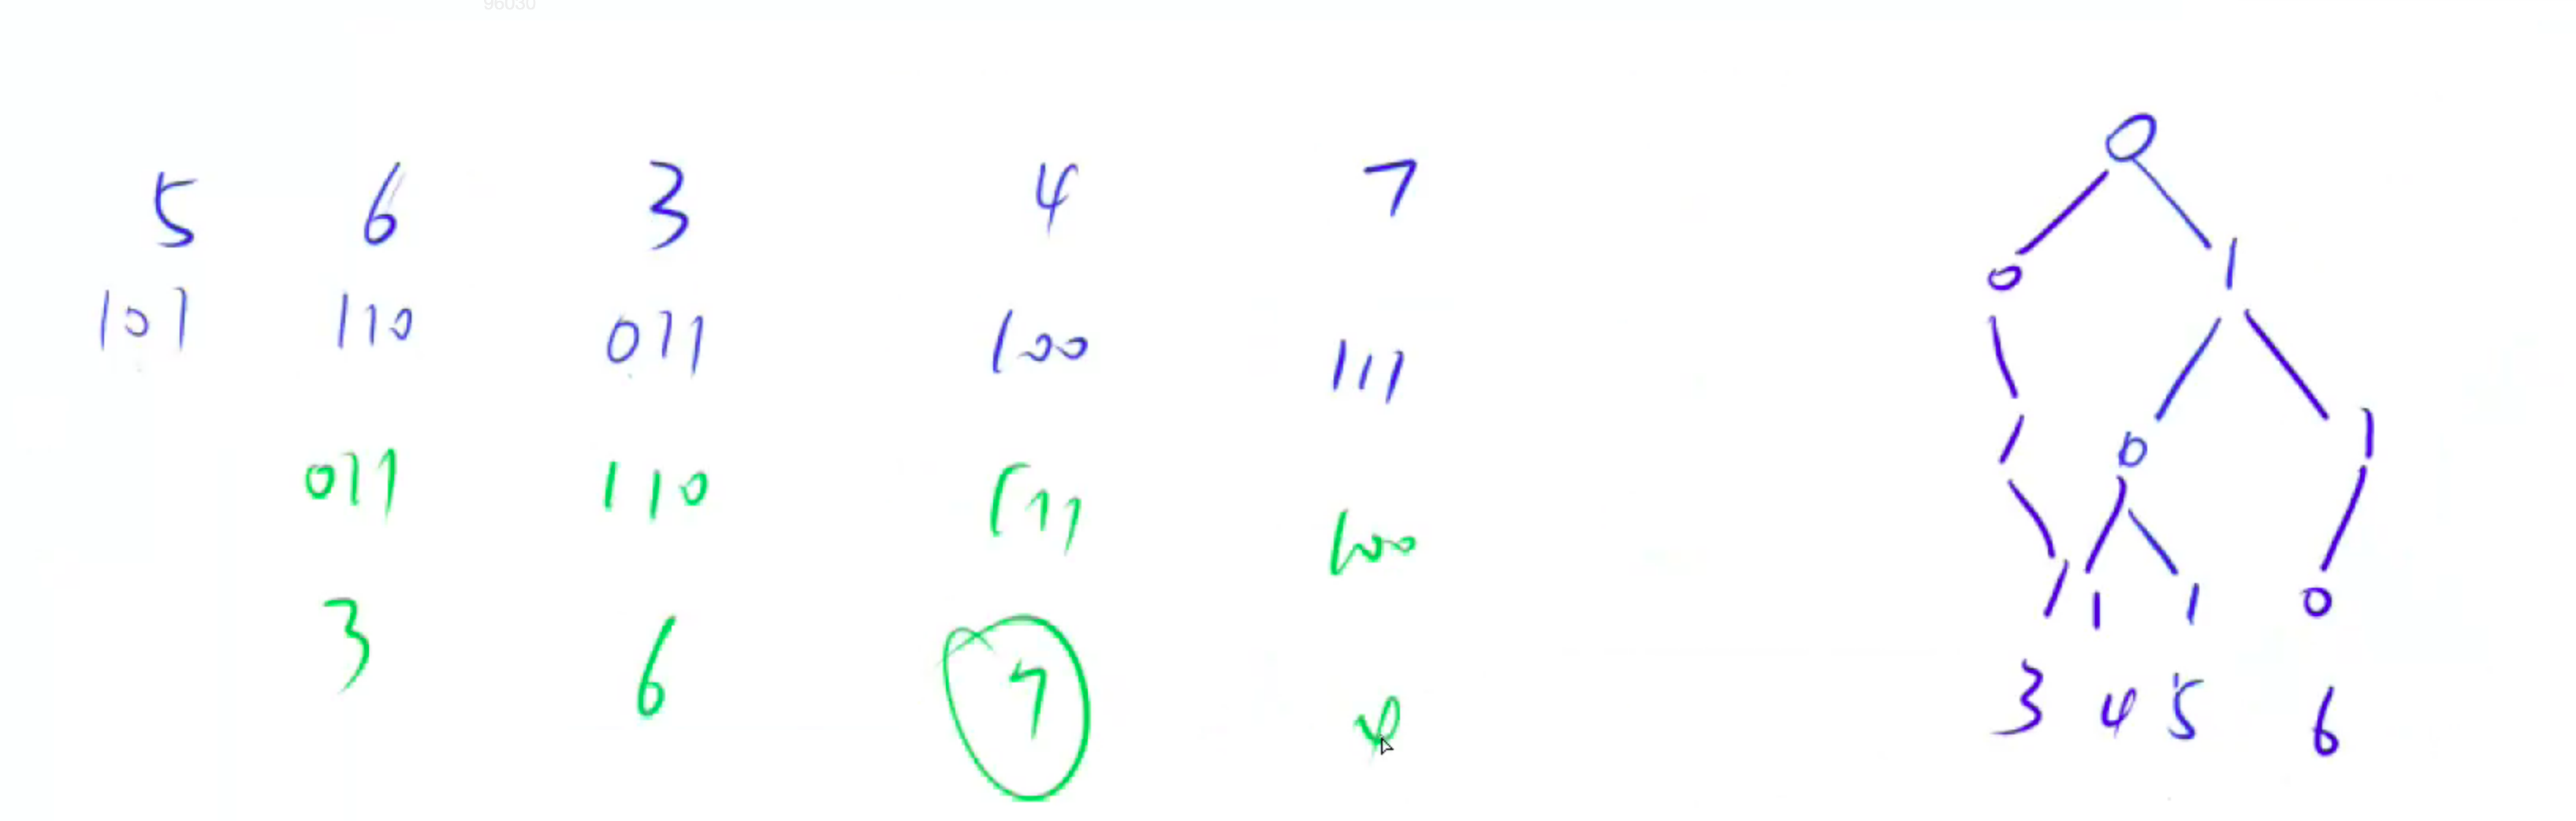 96030
5 6 3 4 7
101 110 011 100 111
011 110 111 100
3 6 7 4
0
0 1
1 0 1
1 1 1 0
3 4 5 6